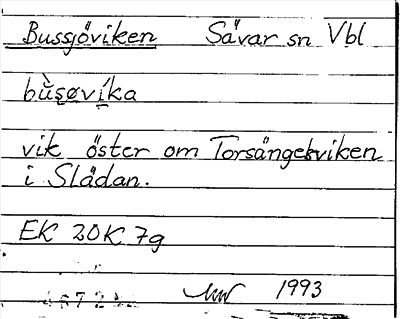 Bussjöviken Sävar sn Vbl
bùs̨øvíka
vik öster om Torsängesviken
i Slädan.
EK 20K 7g
1993